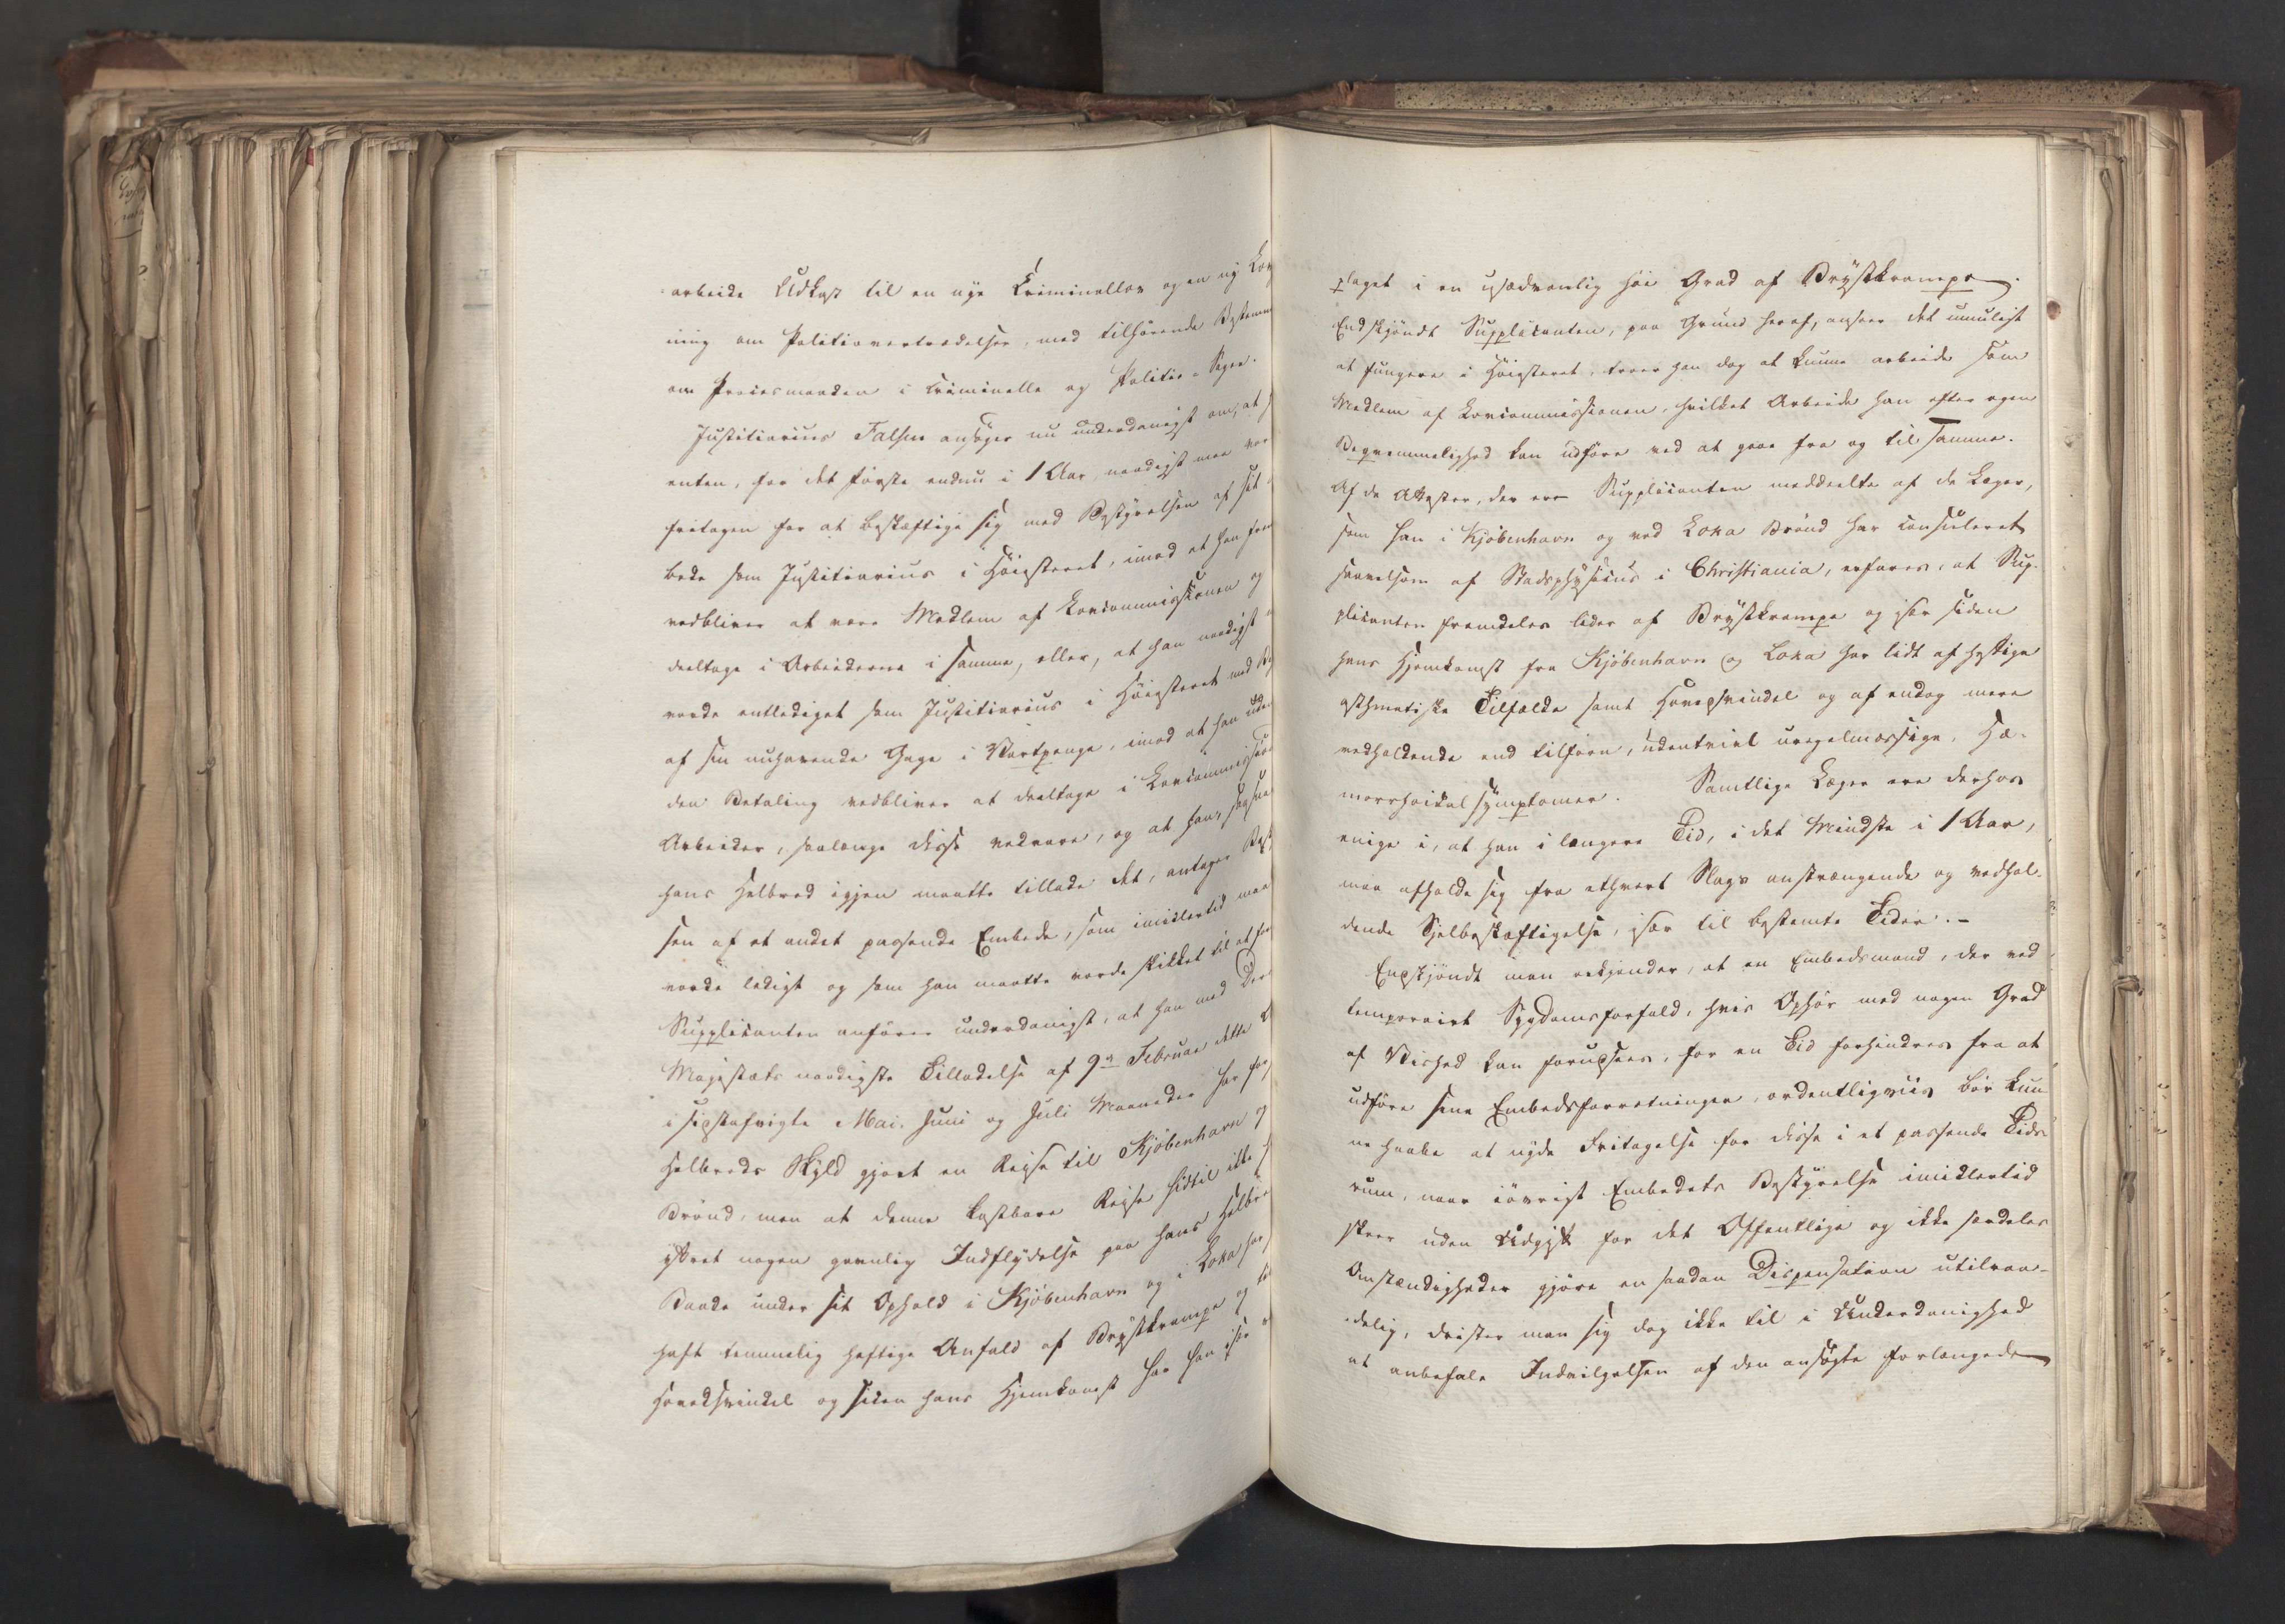 arbeide Udkast til en nye Criminallov og en ny Lov
ning om Politiovertrædelser, med tilhørende Bestemm
om Procesmaaden i criminelle og Politie-Sager.
Justitiarius Falsen ansøger nu underdanigst om, at h
enten, for det første endnu i 1 Aar, naadigst maa vor
fritagen for at beskæftige sig med Bestyrelsen af sit
bede som Justitiarius i Høiesteret, imod at han frem
vedbliver at være Medlem af Lovcommissionen og
deeltage i Arbeiderne i samme, eller, at han naadigst
vorde entlediget som Justitiarius i Høiesteret med
af sin nuhavende Gage i Vartpenge, imod at han uden
den Betaling vedbliver at deeltage i Lovcommission
Arbeider, saalænge disse vedvare, og at han, saasna
hans Helbred igjen maatte tillade det, antager Best
sen af et andet passende Embede, som imidlertid maa
vorde ledigt og som han maatte vorde skikket til at
Supplicanten anfører underdanigst, at han med Der
Majestæts naadigste Tilladelse af 9de Februar dette A
i sidstafvigte Mai, Juni og Juli Maaneder har for
Helbreds Skyld gjort en Reise til Kjöbenhavn og
Brönd, men at denne kostbare Reise hidtil ikke h
ytret nogen gavnlig Indflydelse paa hans Helbre
Baade under sit Ophold i Kjöbenhavn og i Loka har
haft temmelig heftige Anfald af Brystkrampe og
Hovedsvindel og siden hans Hjemkomst har han
plaget i en usædvanlig høi Grad af Brystkrampe.
Endskjøndt Supplicanten, paa Grund heraf, anseer det umuligt
at fungere i Høiesteret, troer han dog at kunne arbeide som
Medlem af Lovcommissionen, hvilket Arbeide han efter egen
Beqvemmelighed kan udføre ved at gaae fra og til samme.
Af de Attester, der ere Supplicanten meddeelte af de Læger,
som han i Kjöbenhavn og ved Loka Brönd har consuleret
saavelsom af Stadsphysicus i Christiania, erfares, at Sup-
plicanten fremdeles lider af Brystkrampe og især siden
hans Hjemkomst fra Kjöbenhavn og Loka har lidt af heftige
asthmatiske Tilfælde samt Hovedsvindel og af endog mere
vedholdende end tilforn, udentvivl uregelmæssige, Hæ-
morrhoidalsymptomer. Samtlige Læger ere derhos
enige i, at han i længere Tid, i det Mindste i 1 Aar,
maa afholde sig fra ethvert Slags anstrængende og vedhol-
dende Sjelbeskæftigelse, især til bestemte Tider.-
Endskjøndt man erkjender, at en Embedsmand, der ved
temporairt Sygdomsforfald, hvis Ophør med nogen Grad
af Vished kan forudsees, for en Tid forhindres fra at
udføre sine Embedsforretninger, ordentligviis bør kun
ne haabe at nyde Fritagelse for disse i et passende Tids
rum, naar iøvrigt Embedets Bestyrelse imidlertid
skeer uden Udgift for det Offentlige og ikke særdeles
Omstændigheder gjøre en saadan Dispensation utilraa-
delig, drister man sig dog ikke til i Underdanighed
at anbefale Indvilgelsen af den ansøgte forlængede